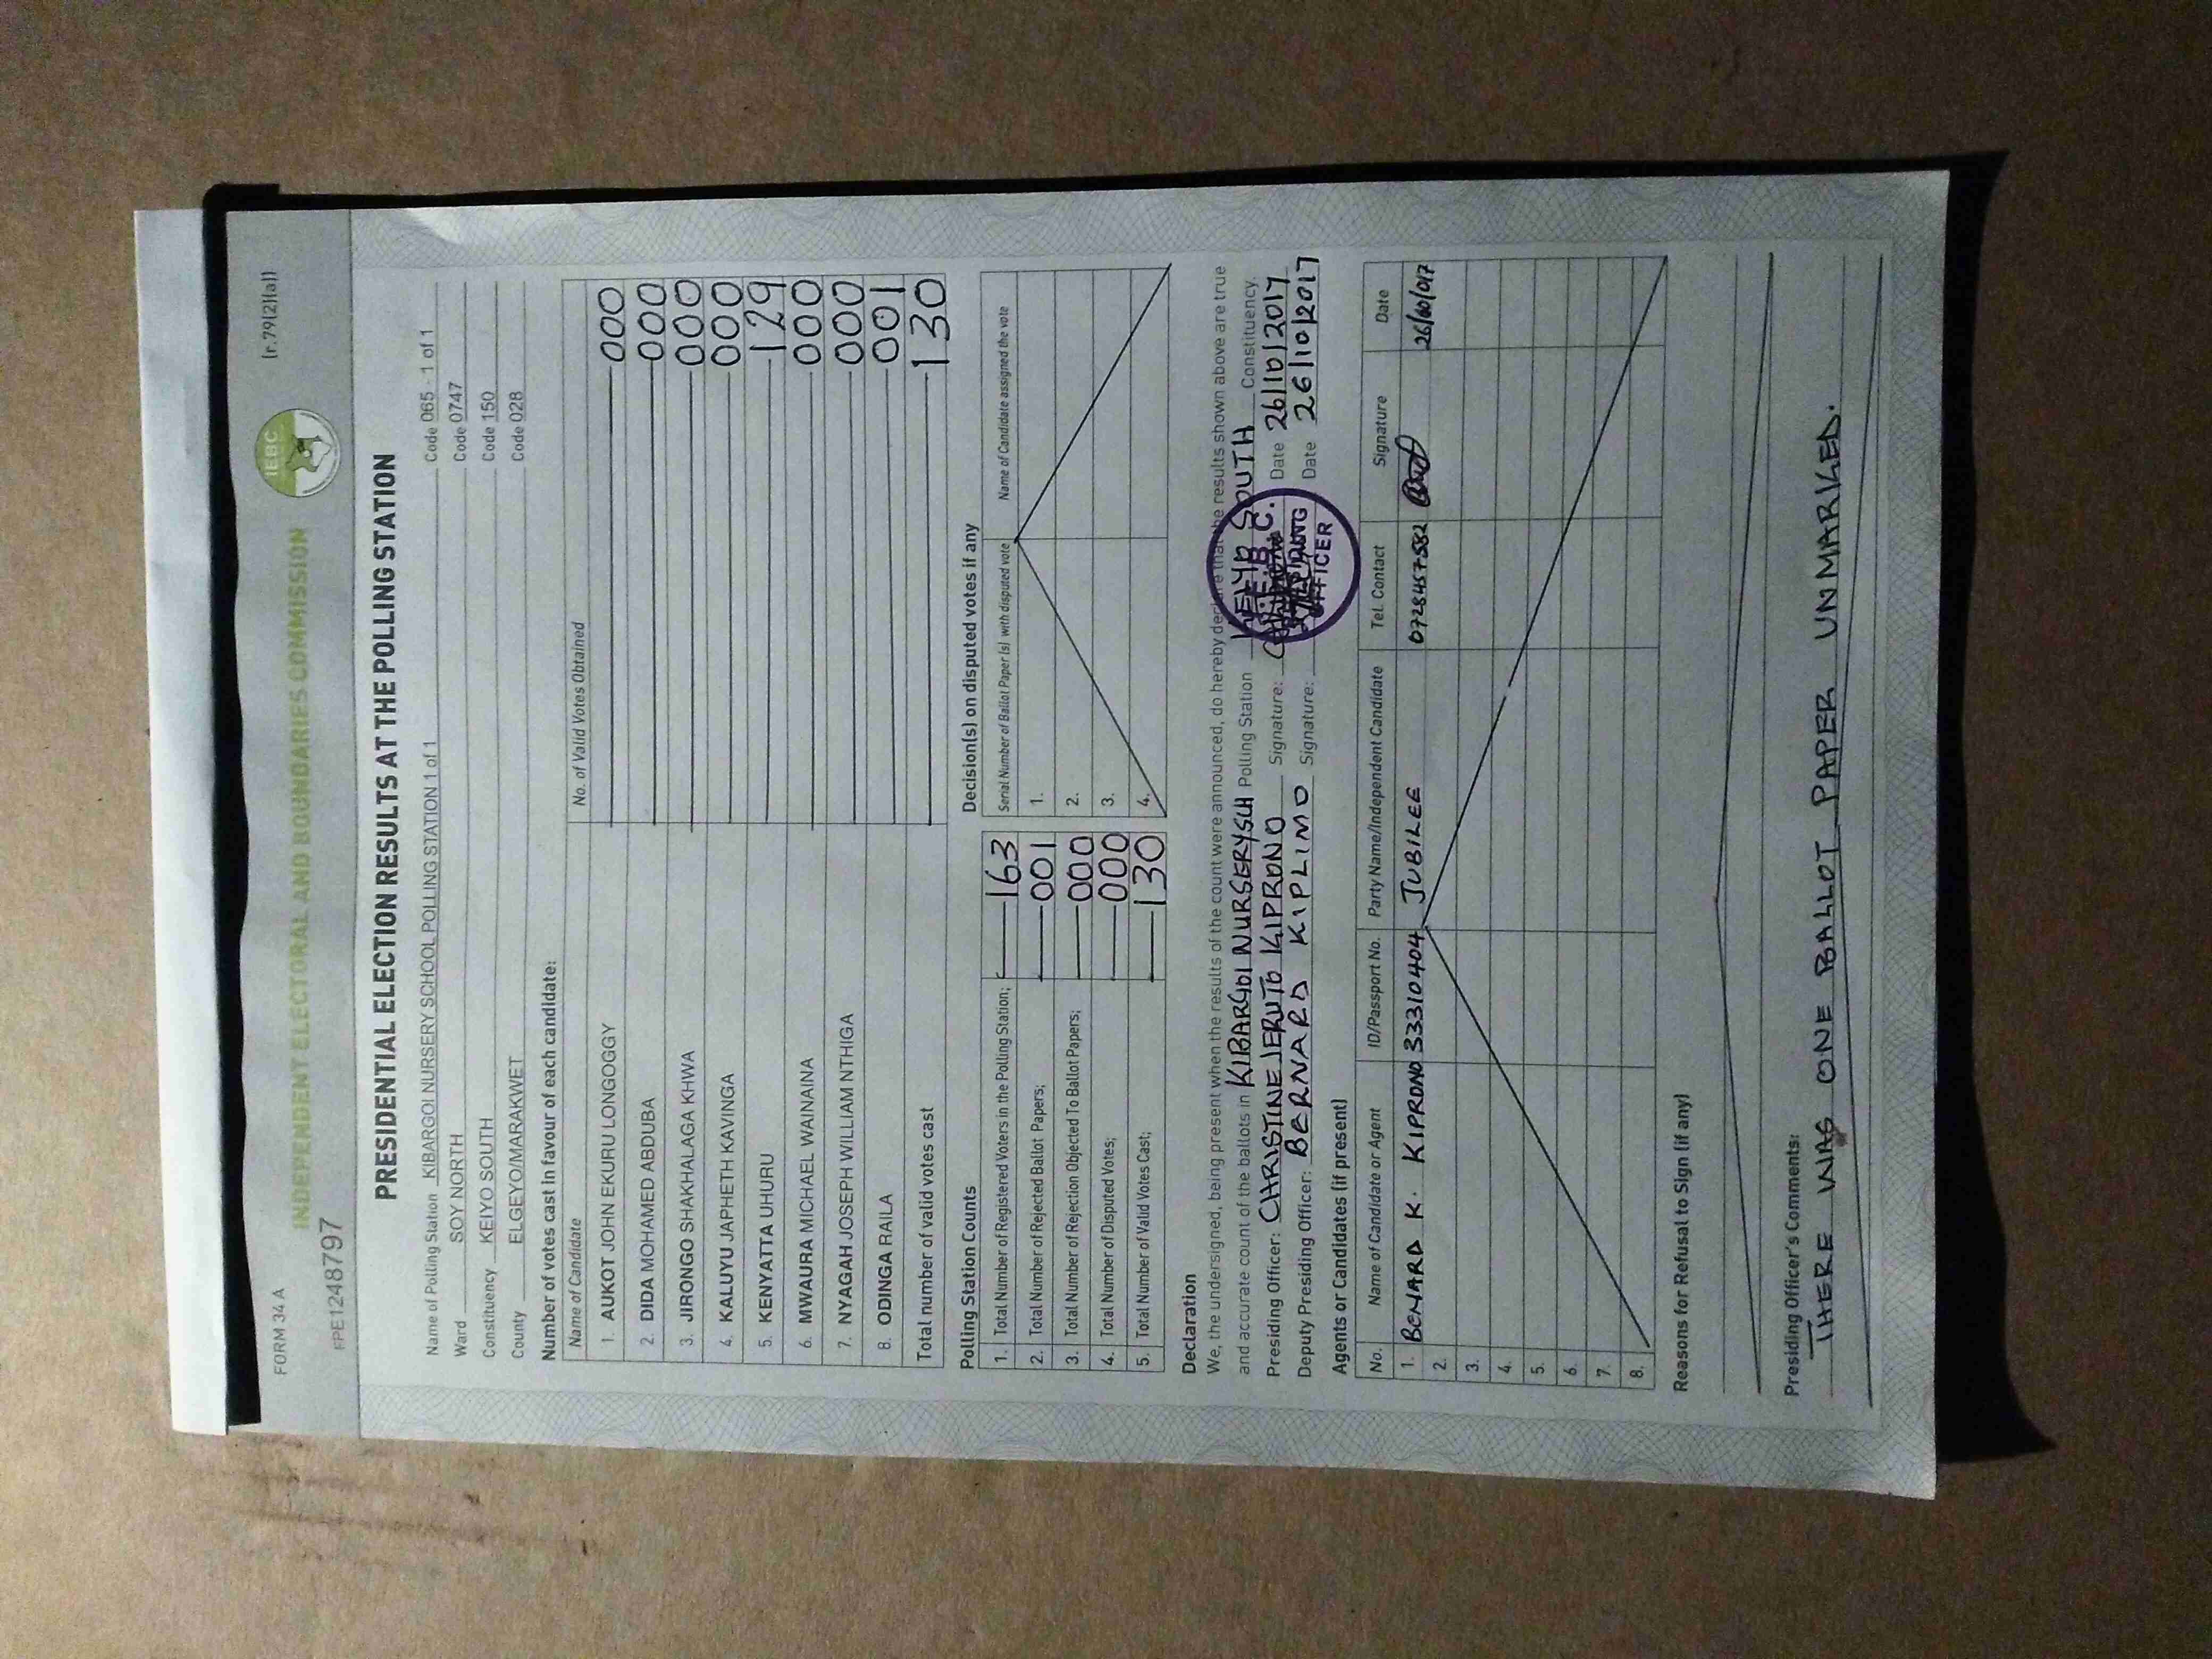 FORM 34 A
(r.79(2)(a))
FPE12487797
INDEPENDENT ELECTORAL AND BOUNDARIES COMMISSION
IEBC
PRESIDENTIAL ELECTION RESULTS AT THE POLLING STATION
Name of Polling Station KIBARGOI NURSERY SCHOOL POLLING STATION 1 of 1 Code 065 - 1 of 1
Ward SOY NORTH Code 0747
Constituency KEIYO SOUTH Code 150
County ELGEYO/MARAKWET Code 028
Number of votes cast in favour of each candidate:
Name of Candidate No. of Valid Votes Obtained
1. AUKOT JOHN EKURU LONGOGGY 000
2. DIDA MOHAMED ABDUBA 000
3. JIRONGO SHAKHALAGA KHWA 000
4. KALUYU JAPHETH KAVINGA 000
5. KENYATTA UHURU 129
6. MWAURA MICHAEL WAINAINA 000
7. NYAGAH JOSEPH WILLIAM NTHIGA 000
8. ODINGA RAILA 001
Total number of valid votes cast 130
Polling Station Counts
1. Total Number of Registered Voters in the Polling Station; 163
2. Total Number of Rejected Ballot Papers; 001
3. Total Number of Rejection Objected To Ballot Papers; 000
4. Total Number of Disputed Votes; 000
5. Total Number of Valid Votes Cast; 130
Decision(s) on disputed votes if any
Serial Number of Ballot Paper (s) with disputed vote Name of Candidate assigned the vote
1.
2.
3.
4.
Declaration
We, the undersigned, being present when the results of the count were announced, do hereby declare that the results shown above are true
and accurate count of the ballots in KIBARGOI NURSERYSCH Polling Station KEIYO SOUTH Constituency.
Presiding Officer: CHRISTINE JERUTO KIPRONO Signature: Date 26/10/2017
Deputy Presiding Officer: BERNARD KIPLIMO Signature: Date 26/10/2017
OFFICER
Agents or Candidates (if present)
No. Name of Candidate or Agent ID/Passport No. Party Name/Independent Candidate Tel. Contact Signature Date
1. BENARD K. KIPRONO 33310404 JUBILEE 0728457582
2.
3.
4.
5.
6.
7.
8.
Reasons for Refusal to Sign (if any)
Presiding Officer's Comments:
THERE WAS ONE BALLOT PAPER UNMARKED.